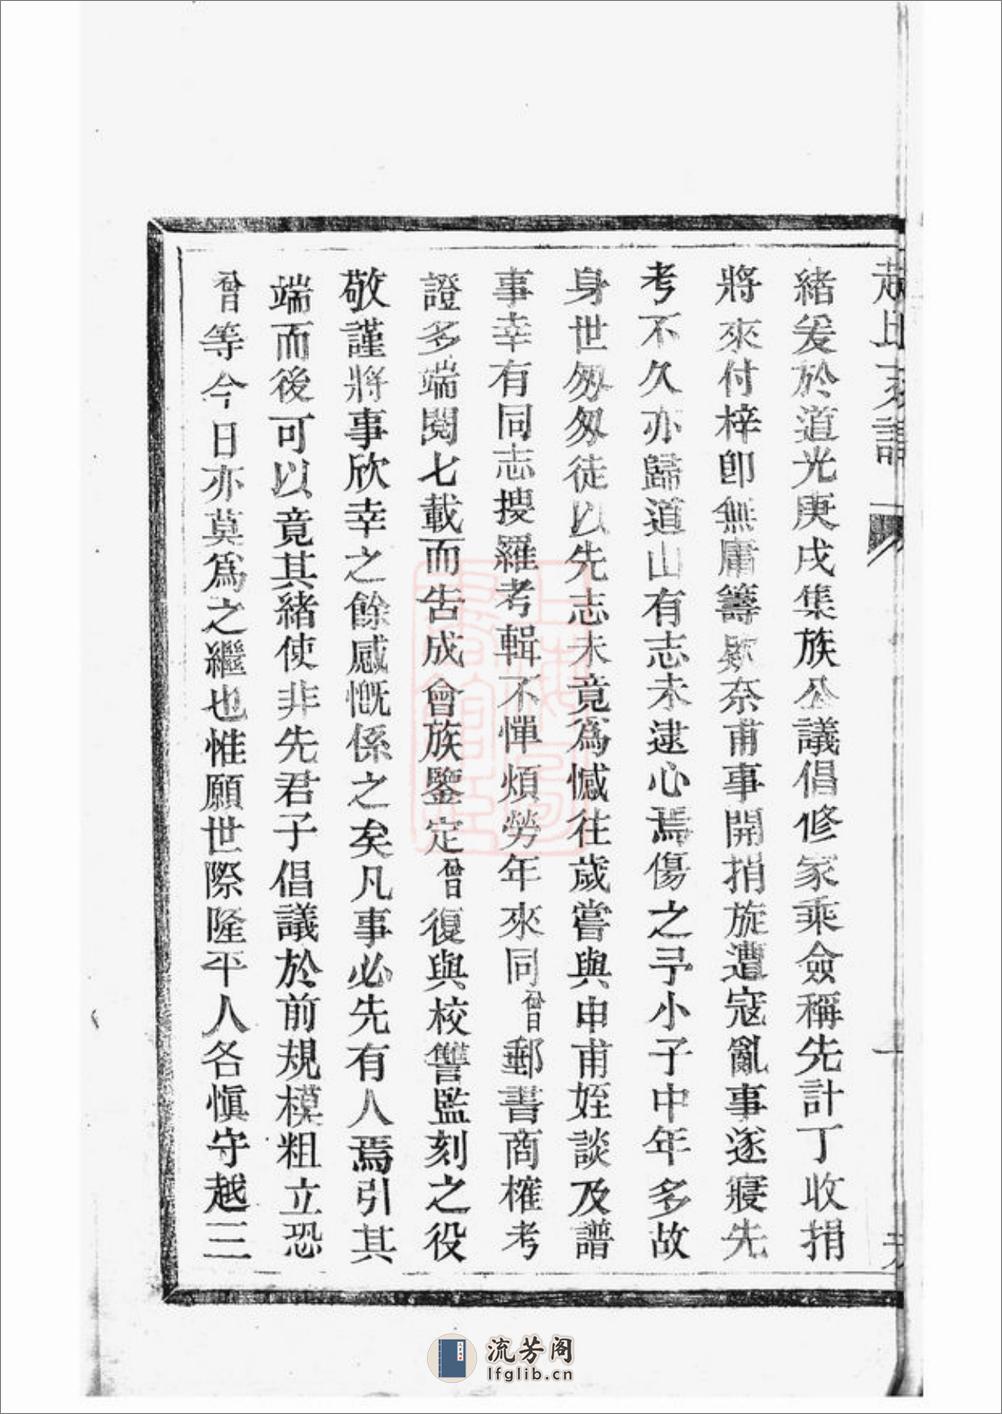 緒爰於道光庚戌集族公議倡修家乘僉稱先計丁收捐
將來付梓卽無庸籌欵奈甫事開捐旋遭寇亂事遂寢先
考不久亦歸道山有志未逮心焉傷之予小子中年多故
身世匆匆徒以先志未竟爲憾往歲嘗與申甫姪談及譜
事幸有同志搜羅考輯不憚煩勞年來同曾郵書商榷考
證多端閱七載而告成會族鑒定曾復與校讐監刻之役
敬謹將事欣幸之餘感慨係之矣凡事必先有人焉引其
端而後可以竟其緒使非先君子倡議於前規模粗立恐
曾等今日亦莫爲之繼也惟願世際隆平人各愼守越三
流芳阁
lfglib.cn